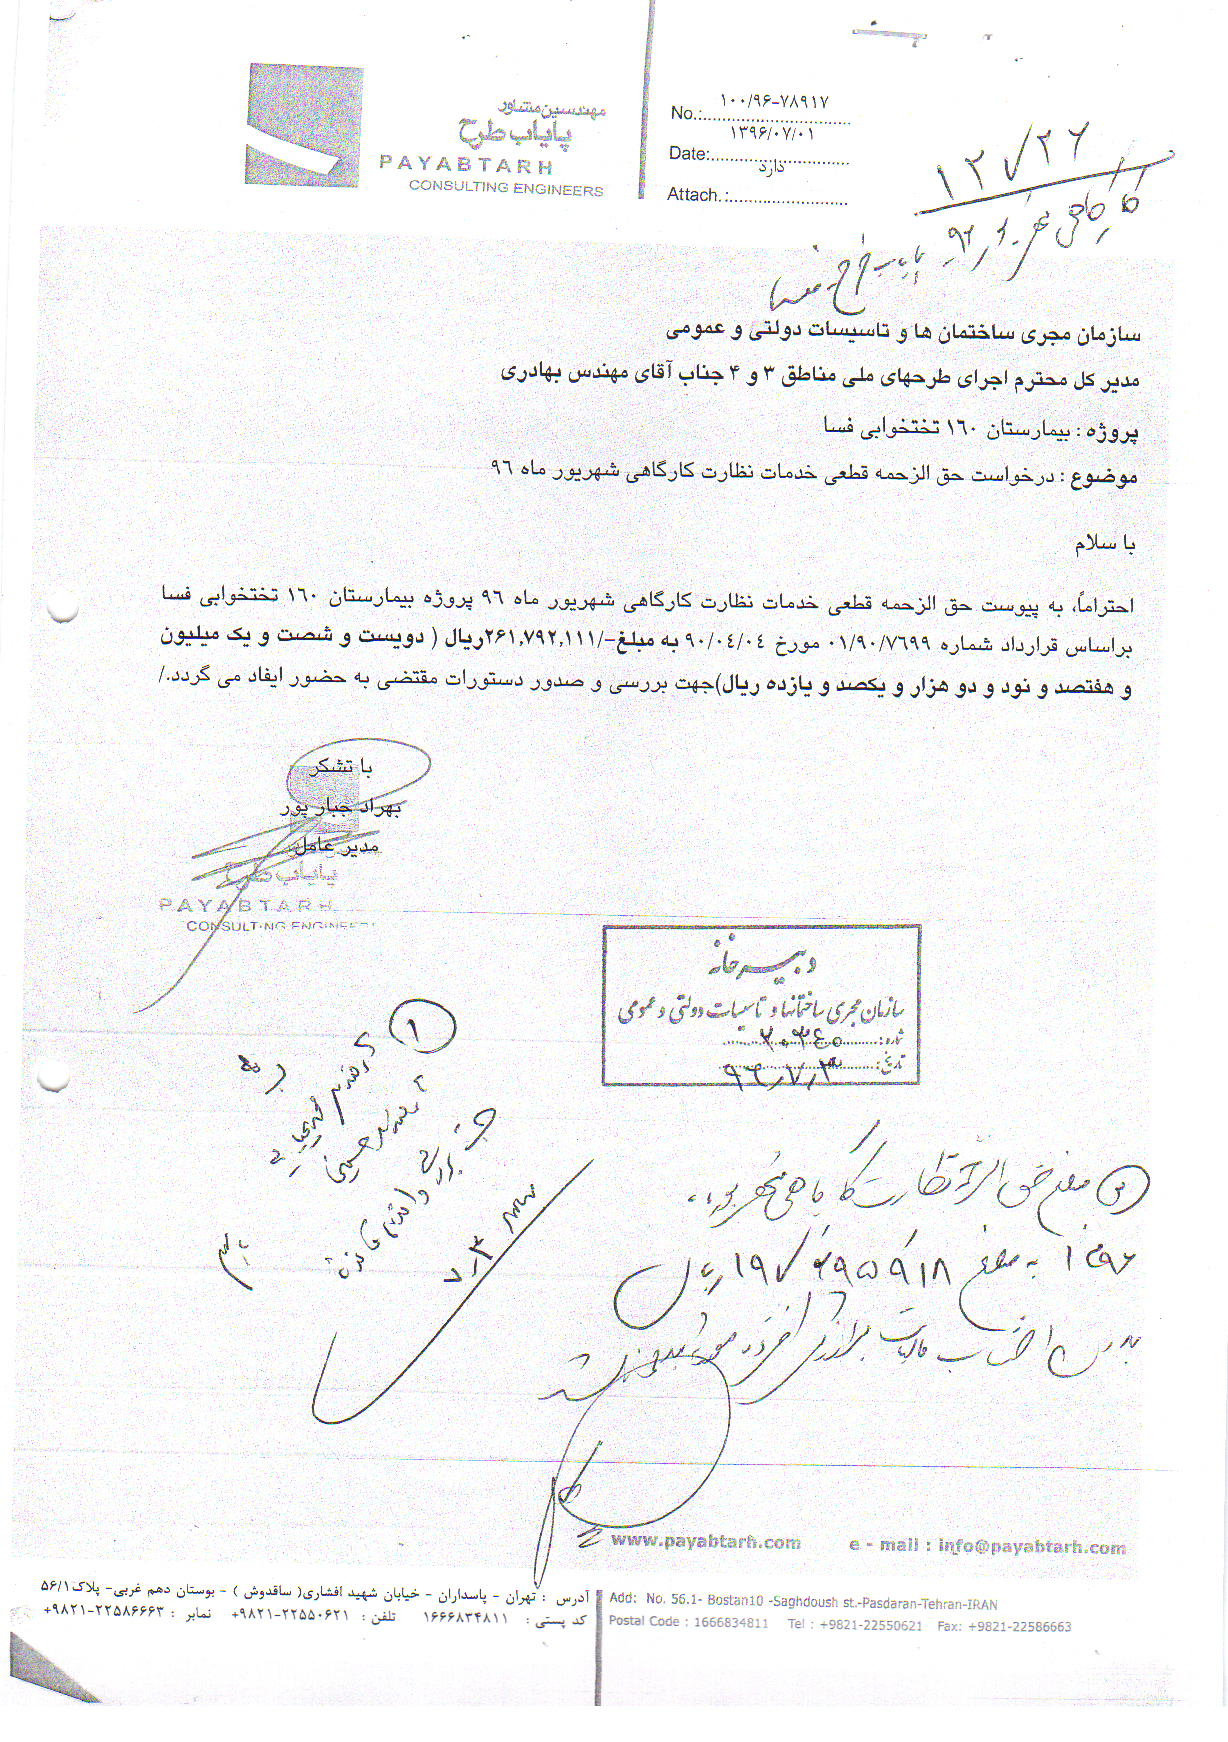 مهندسین مشاور
پایاب طرح
PAYABTARH
CONSULTING ENGINEERS
No.: ۱۰۰/۹۶-۷۸۹۱۷
Date: ۱۳۹۶/۰۷/۰۱
Attach.: دارد
سازمان مجری ساختمان ها و تاسیسات دولتی و عمومی
مدیر کل محترم اجرای طرحهای ملی مناطق ۳ و ۴ جناب آقای مهندس بهادری
پروژه : بیمارستان ۱۶۰ تختخوابی فسا
موضوع : درخواست حق الزحمه قطعی خدمات نظارت کارگاهی شهریور ماه ۹۶
با سلام
احتراماً، به پیوست حق الزحمه قطعی خدمات نظارت کارگاهی شهریور ماه ۹۶ پروژه بیمارستان ۱۶۰ تختخوابی فسا
براساس قرارداد شماره ۰۱/۹۰/۷۶۹۹ مورخ ۹۰/۰۴/۰۴ به مبلغ-/۲۶۱,۷۹۲,۱۱۱ریال ( دویست و شصت و یک میلیون
و هفتصد و نود و دو هزار و یکصد و یازده ریال)جهت بررسی و صدور دستورات مقتضی به حضور ایفاد می گردد./
با تشکر
بهراد جبار پور
مدیر عامل
پایاب طرح
PAYABTARH
CONSULTING ENGINEERS
دبیرخانه
سازمان مجری ساختمانها و تاسیسات دولتی و عمومی
شماره: ۲۰۳۴۵
تاریخ: ۹۶/۷/۳
۱
مبلغ حق الزحمه نظارت کارگاهی شهریور
به مبلغ ۱۹۷/۶۹۵/۹۱۸ ریال
www.payabtarh.com e - mail : info@payabtarh.com
آدرس : تهران - پاسداران - خیابان شهید افشاری( ساقدوش ) - بوستان دهم غربی- پلاک۵۶/۱
کد پستی : ۱۶۶۶۸۳۴۸۱۱ تلفن : ۲۲۵۵۰۶۲۱-۹۸۲۱+ نمابر : ۲۲۵۸۶۶۶۳-۹۸۲۱+
Add: No. 56.1- Bostan10 -Saghdoush st.-Pasdaran-Tehran-IRAN
Postal Code : 1666834811 Tel : +9821-22550621 Fax: +9821-22586663